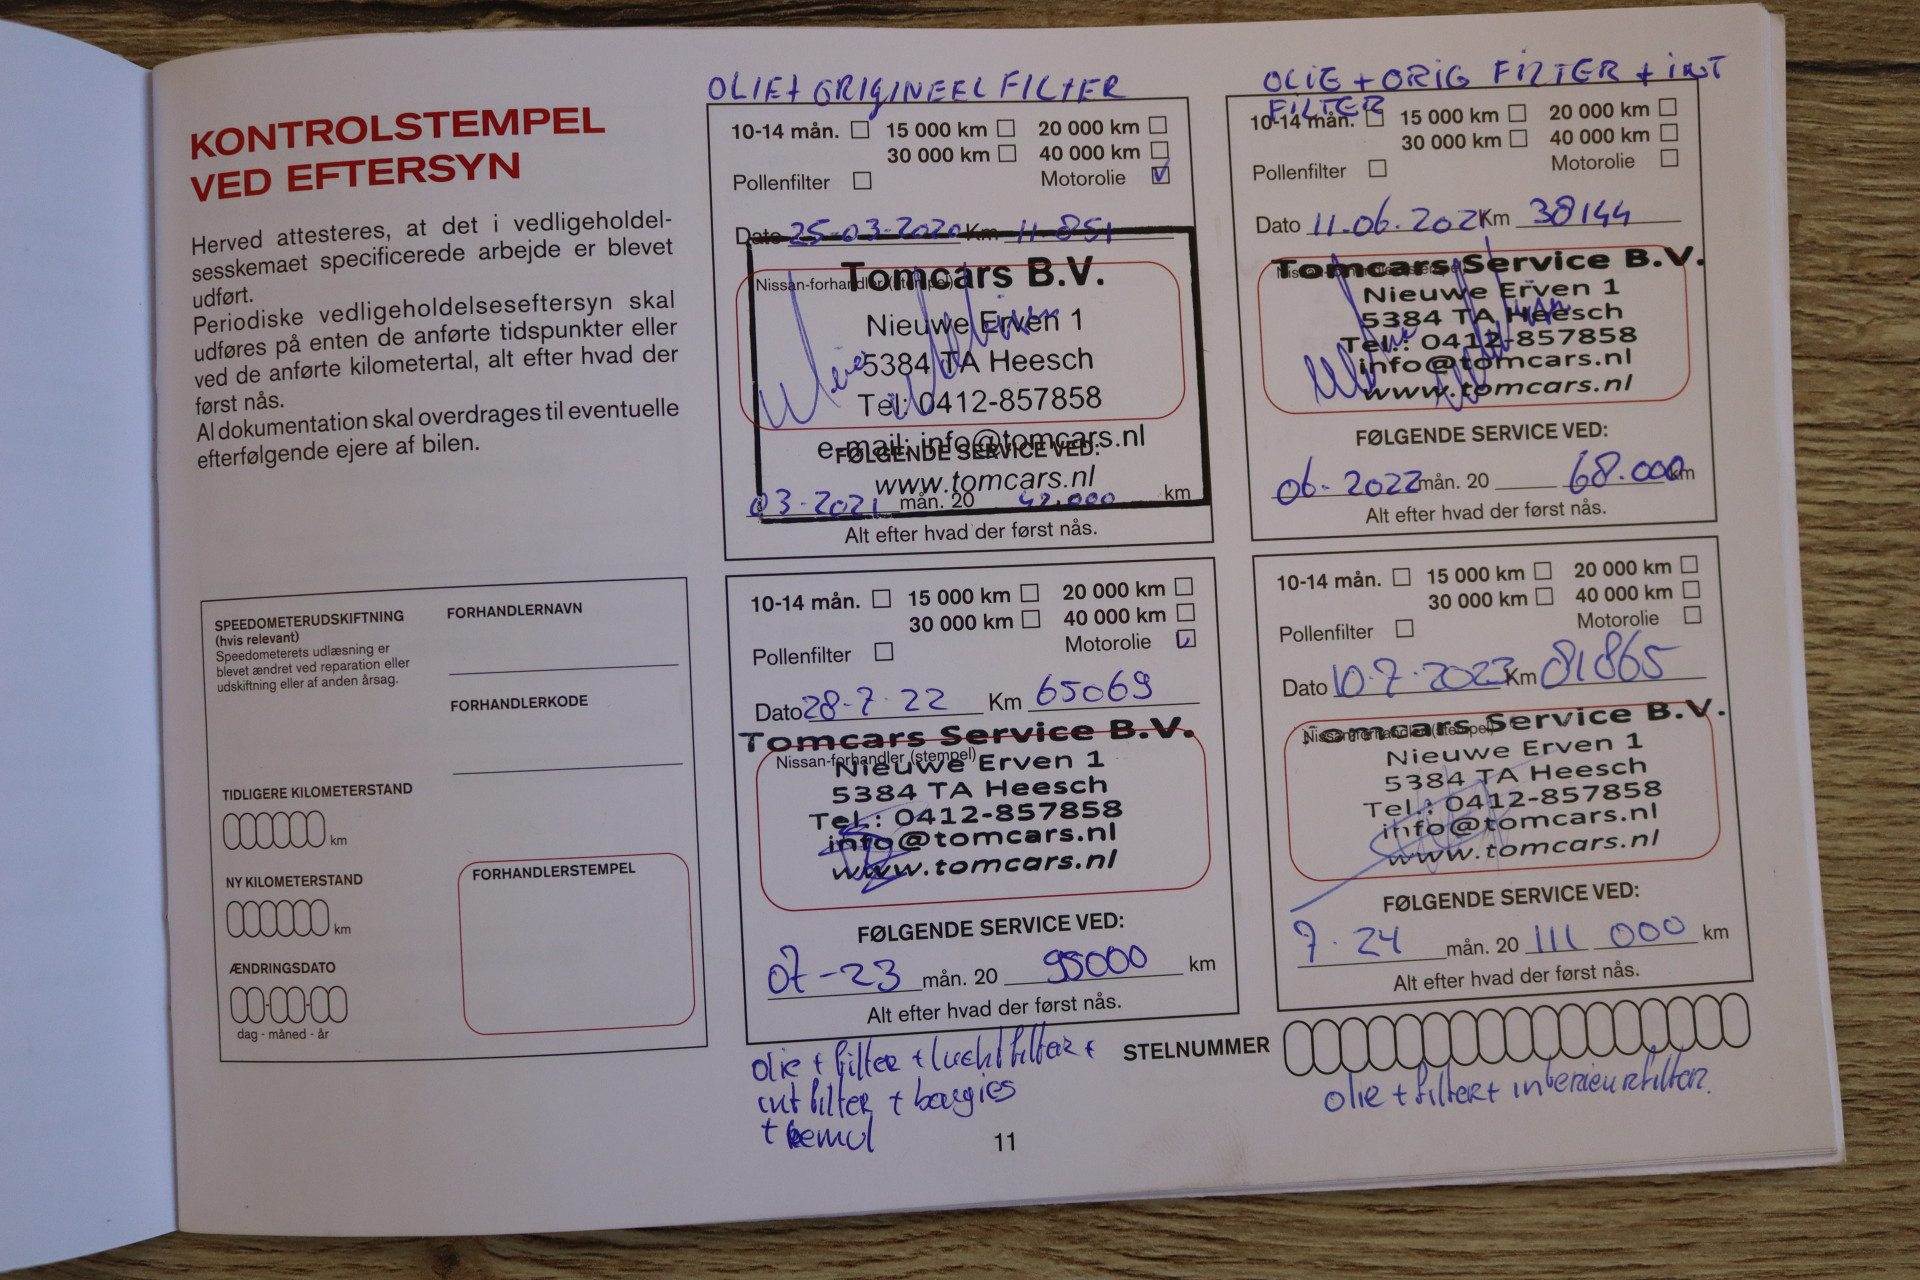 KONTROLSTEMPEL
VED EFTERSYN
Herved attesteres, at det i vedligeholdel-
sesskemaet specificerede arbejde er blevet
udført.
Periodiske vedligeholdelseseftersyn skal
udføres på enten de anførte tidspunkter eller
ved de anførte kilometertal, alt efter hvad der
først nås.
Al dokumentation skal overdrages til eventuelle
efterfølgende ejere af bilen.
SPEEDOMETERUDSKIFTNING
(hvis relevant)
Speedometerets udlæsning er
blevet ændret ved reparation eller
udskiftning eller af anden årsag.
FORHANDLERNAVN
FORHANDLERKODE
TIDLIGERE KILOMETERSTAND
km
NY KILOMETERSTAND
km
ÆNDRINGSDATO
dag - måned - år
FORHANDLERSTEMPEL
OLIE+ ORIGINEEL FILTER
10-14 mån. 15 000 km 20 000 km
30 000 km 40 000 km
Pollenfilter Motorolie
Dato 25-03-2020 Km 11.851
Nissan-forhandler (stempel)
Tomcars B.V.
Nieuwe Erven 1
5384 TA Heesch
Tel: 0412-857858
e-mail: info@tomcars.nl
FØLGENDE SERVICE VED:
www.tomcars.nl
03-2021 mån. 20 42.000 km
Alt efter hvad der først nås.
OLIE + ORIG FILTER + INT
FILTER
10-14 mån. 15 000 km 20 000 km
30 000 km 40 000 km
Pollenfilter Motorolie
Dato 11-06-2021 Km 38144
Tomcars Service B.V.
Nieuwe Erven 1
5384 TA Heesch
Tel.: 0412-857858
info@tomcars.nl
www.tomcars.nl
FØLGENDE SERVICE VED:
06-2022 mån. 20 68.000 km
Alt efter hvad der først nås.
10-14 mån. 15 000 km 20 000 km
30 000 km 40 000 km
Pollenfilter Motorolie
Dato 28-7-22 Km 65069
Tomcars Service B.V.
Nissan-forhandler (stempel)
Nieuwe Erven 1
5384 TA Heesch
Tel.: 0412-857858
info@tomcars.nl
www.tomcars.nl
FØLGENDE SERVICE VED:
07-23 mån. 20 95000 km
Alt efter hvad der først nås.
olie + filter + luchtfilter +
int filter + bougies
+ remvl
10-14 mån. 15 000 km 20 000 km
30 000 km 40 000 km
Pollenfilter Motorolie
Dato 10-7-2023 Km 81865
Tomcars Service B.V.
Nissan-forhandler (stempel)
Nieuwe Erven 1
5384 TA Heesch
Tel.: 0412-857858
info@tomcars.nl
www.tomcars.nl
FØLGENDE SERVICE VED:
7-24 mån. 20 111 000 km
Alt efter hvad der først nås.
STELNUMMER
olie + filter + interieurfilter.
11